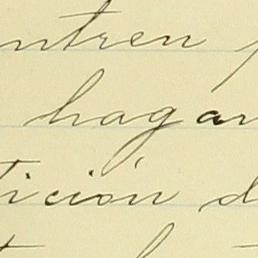 ntren
hagar
ición d